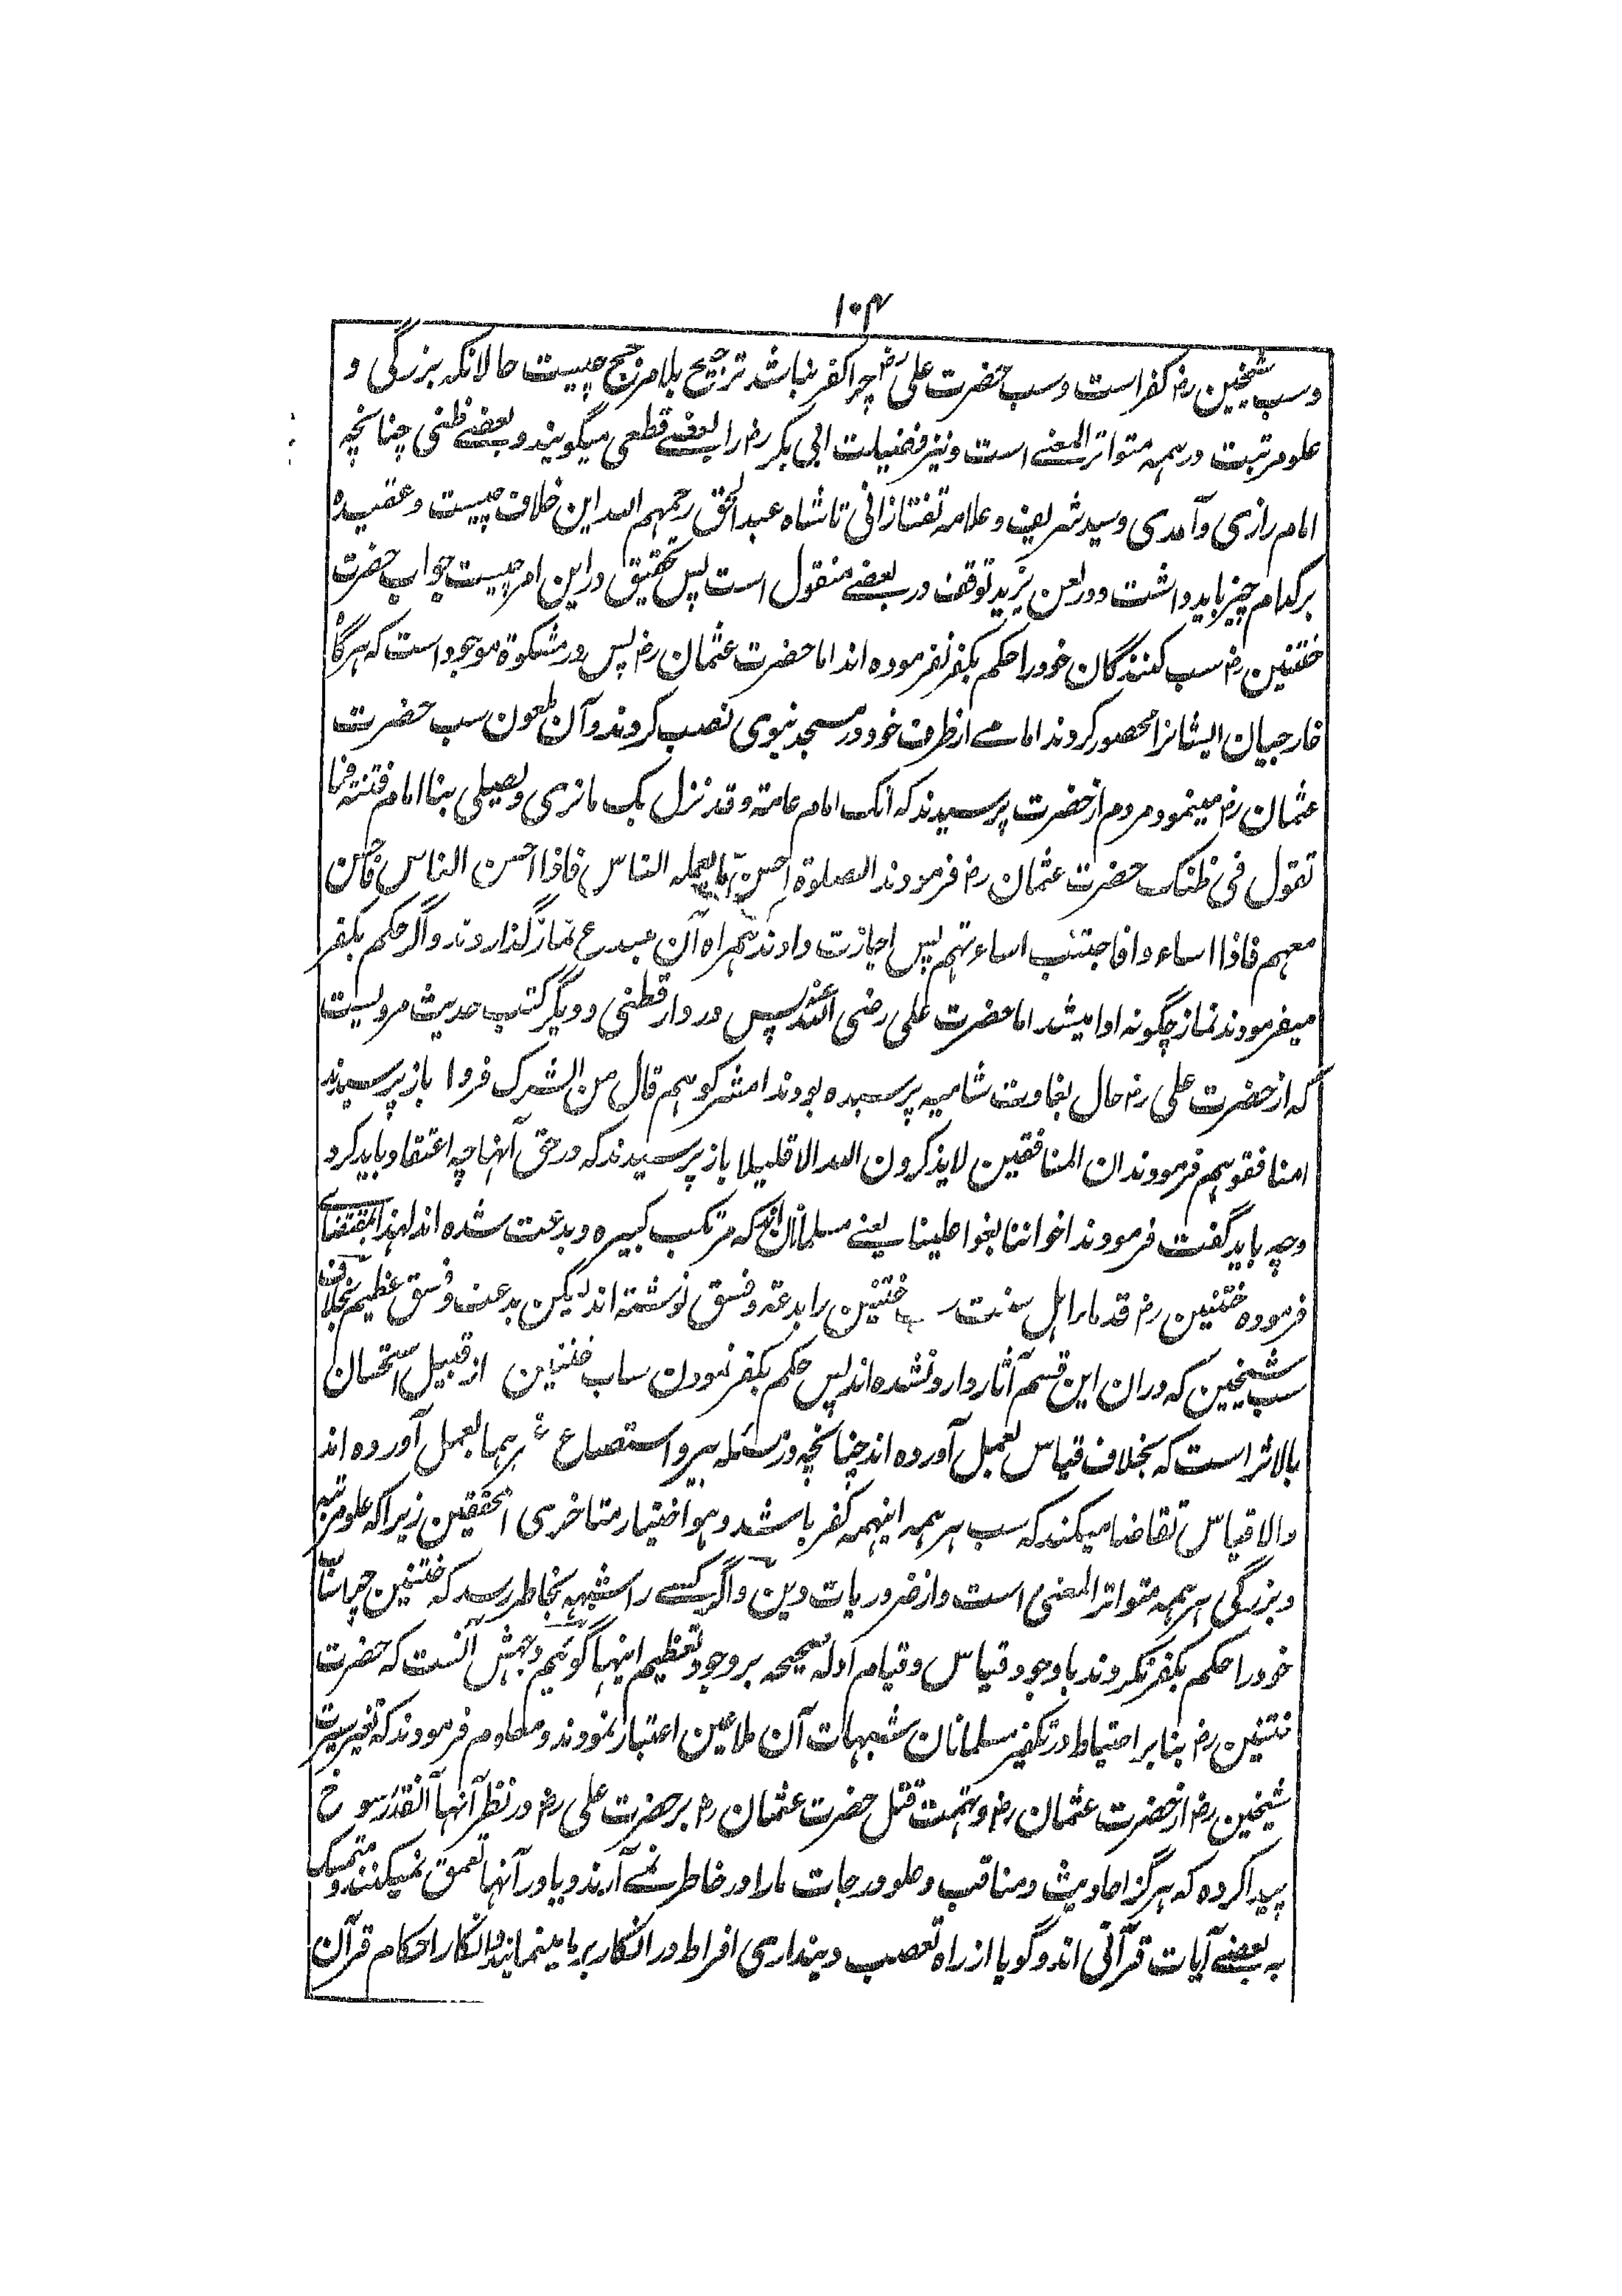 ۱۰۴
وسب شیخین رض کفر است وسب حضرت علی رض چرا کفر نباشد ترجیح بلا مرجح چیست حالانکه بزرگی و
علو مرتبت در همه متواتر المعنے است ونیز فضیلت ابی بکر رض را بعضے قطعی میگویند و بعضے ظنی چنانچه
امام رازی و آمدی وسید شریف و علامه تفتازانی تا شاه عبد الحق رحمهم الله این خلاف چیست و عقیده
بر کدام چیز باید داشت و در لعن یزید توقف در بعضے منقول است پس تحقیق در این امر چیست جواب حضرت
ختنین رض سب کنندگان خود را حکم بکفر نفرموده اند اما حضرت عثمان رض پس در مشکوة موجود است که هرگاه
خارجیان ایشانرا محصور کردند امامے از طرف خود در مسجد نبوی نصب کردند و آن ملعون سب حضرت
عثمان رض مینمود مردم از حضرت پرسیدند که انک امام عامة وقد نزل بک ما تری ویصلی بنا امام فتنة فما
تقول فی ظنک حضرت عثمان رض فرمودند الصلوة احسن ما یعمله الناس فاذا احسن الناس فاحسن
معهم فاذا اساءوا فاجتنب اساءتهم پس اجازت دادند همراه آن مبدع نماز گذاردند و اگر حکم بکفر
میفرمودند نماز چگونه ادا میشد اما حضرت علی رضی الله عنه پس در دار قطنی و دیگر کتب حدیث مرویست
که از حضرت علی رض حال بغاوت شامیه پرسیده بودند امشرکوهم قال من الشرک فروا باز پرسیدند
امنافقوهم فرمودند ان المنافقین لا یذکرون الله الا قلیلا باز پرسیدند که در حق آنها چه اعتقاد باید کرد
وچه باید گفت فرمودند اخواننا بغوا علینا یعنے مسلمانان اند که مرتکب کبیره و بدعت شده اند لهذا بمقتضاے
فرموده ختنین رض قدماء اهل سنت سب ختنین را بدعة و فسق نوشته اند لیکن بدعت و فسق عظیم بخلاف
سب شیخین که دران این قسم آثار وارد نشده اند پس حکم بکفر نمودن ساب ختنین از قبیل استحسان
بالاثر است که بخلاف قیاس بعمل آورده اند چنانچه در مسئله بیر و استصناع بعمل آورده اند
والا قیاس تقاضا میکند که سب هر همه اینهمه کفر باشد وهو اختیار متاخری المحققین زیرا که علو مرتبه
و بزرگی هر همه متواتر المعنی است و از ضروریات دین و اگر کسے را شبهه بخاطر رسد که ختنین چرا ساب
خود را حکم بکفر نکردند با وجود قیاس و قیام ادله صحیحه بر وجوب تعظیم اینها گوئیم وجهش آنست که حضرت
ختنین رض بنا بر احتیاط در تکفیر مسلمانان شبهات آن ملاعین اعتبار نمودند و معلوم فرمودند که تغیر سیرت
شیخین رض از حضرت عثمان رض و تهمت قتل حضرت عثمان رض بر حضرت علی رض در نظر آنها آنقدر رسوخ
پیدا کرده که هرگز احادیث و مناقب و علو درجات ما را در خاطر نمے آرند و یا در آنها تعمق نمیکنند و متمسک
به بعضے آیات قرآنی اند و گویا از راه تعصب دینداری افراط در انکار بر ما مینمایند و انکار احکام قرآن